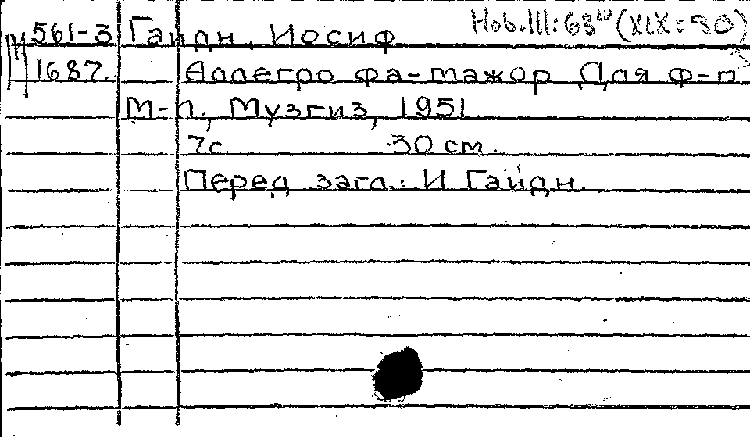 М 561-3 Гайдн, Иосиф Hob.III:63 IV (XIX:30)
1687. Аллегро фа-мажор Для ф-п.
М-Л., Музгиз, 1951
7с 30 см.
Перед загл.: И Гайдн.